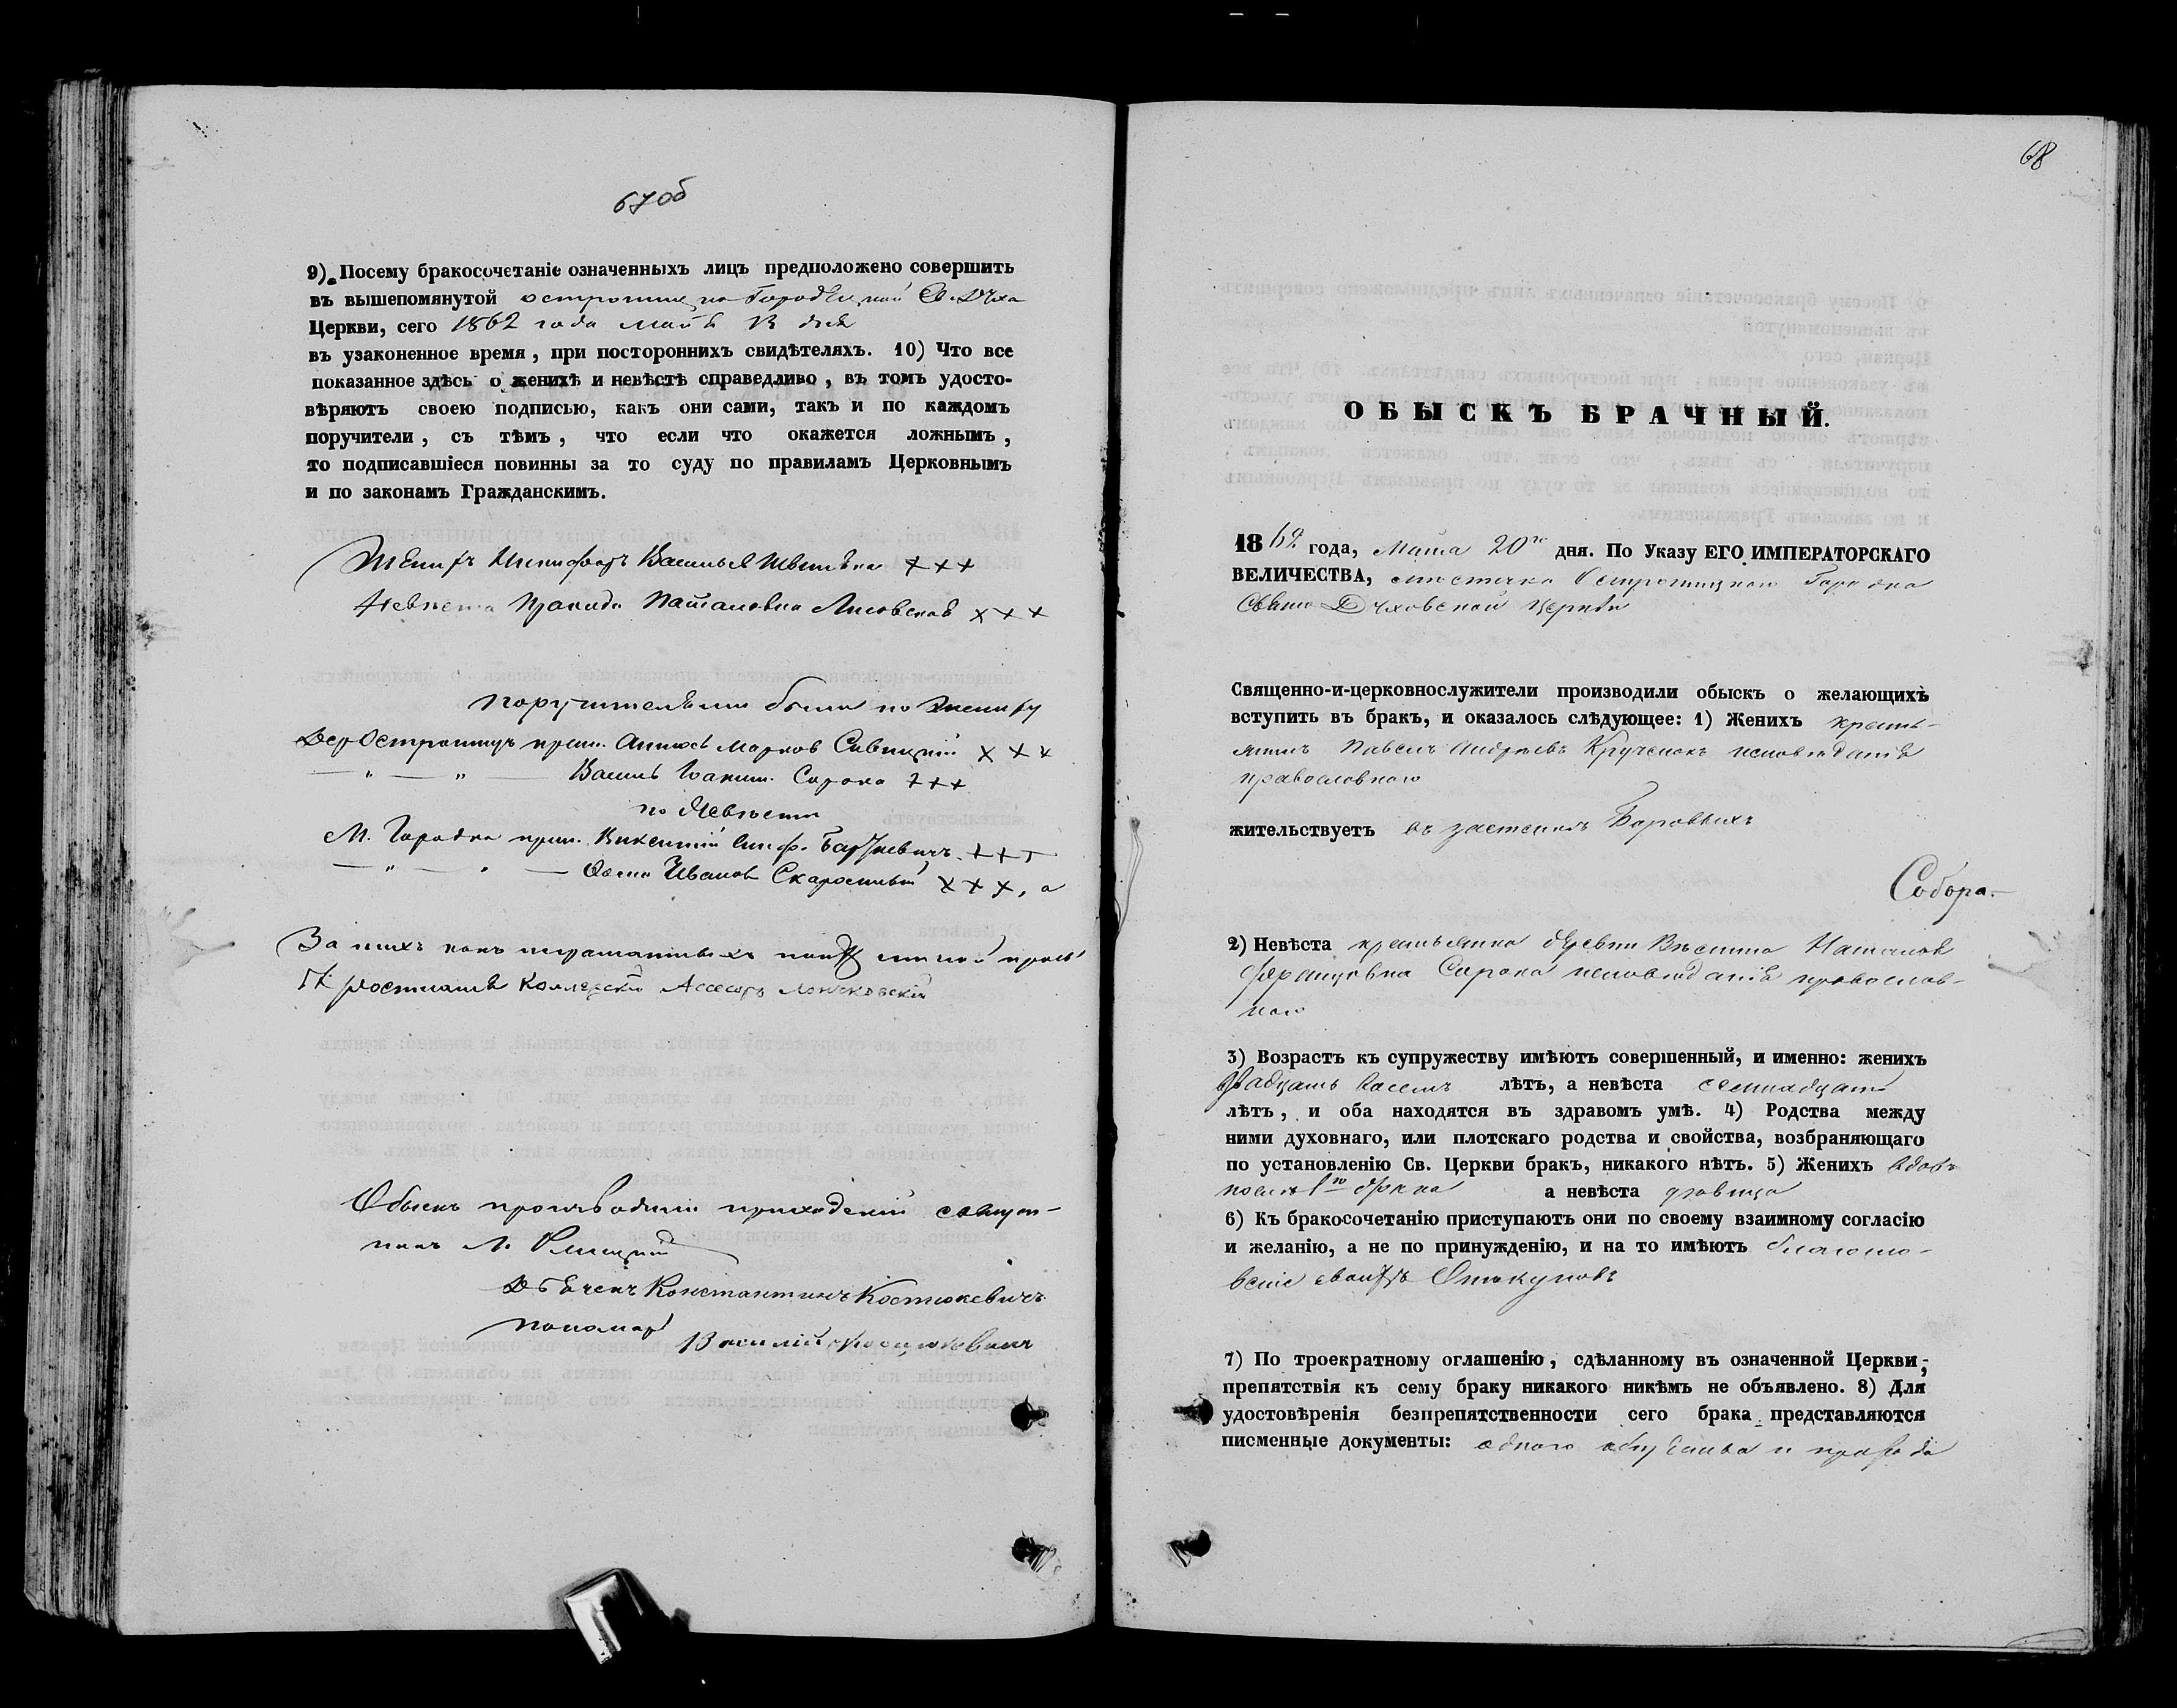 67об
9) Посему бракосочетаніе означенныхъ лицъ предположено совершить
въ вышепомянутой Св. Духа
Церкви, сего 1862 года Маія 13 дня
въ узаконенное время, при постороннихъ свидѣтеляхъ. 10) Что все
показанное здѣсь о женихѣ и невѣстѣ справедливо, въ томъ удосто-
вѣряютъ своею подписью, какъ они сами, такъ и по каждомъ
поручители, съ тѣмъ, что если что окажется ложнымъ,
то подписавшіеся повинны за то суду по правиламъ Церковнымъ
и по законамъ Гражданскимъ.
Женихъ Никифоръ Васильевъ +++
Невѣста Лисовская +++
Поручителями были по жениху
Дер Острошицъ крест. Марковъ Савицкій +++
— " — " — Василь Іоаким. Сорока +++
по Невѣсти
М. Городка крест. Викентій +++
— " — " — Осипъ Ивановъ +++, а
За нихъ какъ неграматныхъ по ихъ личной прозь
бѣ росписался Коллежскій Ассесоръ
Обыскъ производили приходскій священ-
никъ Л.
Дьячекъ Константинъ Костюкевичъ
пономарь Василій
68
ОБЫСКЪ БРАЧНЫЙ.
1862 года, Маія 20го дня. По Указу ЕГО ИМПЕРАТОРСКАГО
ВЕЛИЧЕСТВА, мѣстечка Острошицкаго Городка
Свято Духовской церкви
Священно-и-церковнослужители производили обыскъ о желающихъ
вступить въ бракъ, и оказалось слѣдующее: 1) Женихъ кресть-
янинъ Павелъ Андреевъ Крученокъ исповѣданія
православнаго
жительствуетъ въ застѣнкѣ Боровыхъ
Собора.
2) Невѣста крестьянка деревни
Францовна Сорока исповѣданія православ-
наго
3) Возрастъ къ супружеству имѣютъ совершенный, и именно: женихъ
двадцать восемь лѣтъ, а невѣста семнадцать
лѣтъ, и оба находятся въ здравомъ умѣ. 4) Родства между
ними духовнаго, или плотскаго родства и свойства, возбраняющаго
по установленію Св. Церкви бракъ, никакого нѣтъ. 5) Женихъ вдовъ
послѣ 1го брака а невѣста дѣвица
6) Къ бракосочетанію приступаютъ они по своему взаимному согласію
и желанію, а не по принужденію, и на то имѣютъ благосло-
веніе своихъ Опекуновъ
7) По троекратному оглашенію, сдѣланному въ означенной Церкви,
препятствія къ сему браку никакого никѣмъ не объявлено. 8) Для
удостовѣренія безпрепятственности сего брака представляются
писменные документы: одного